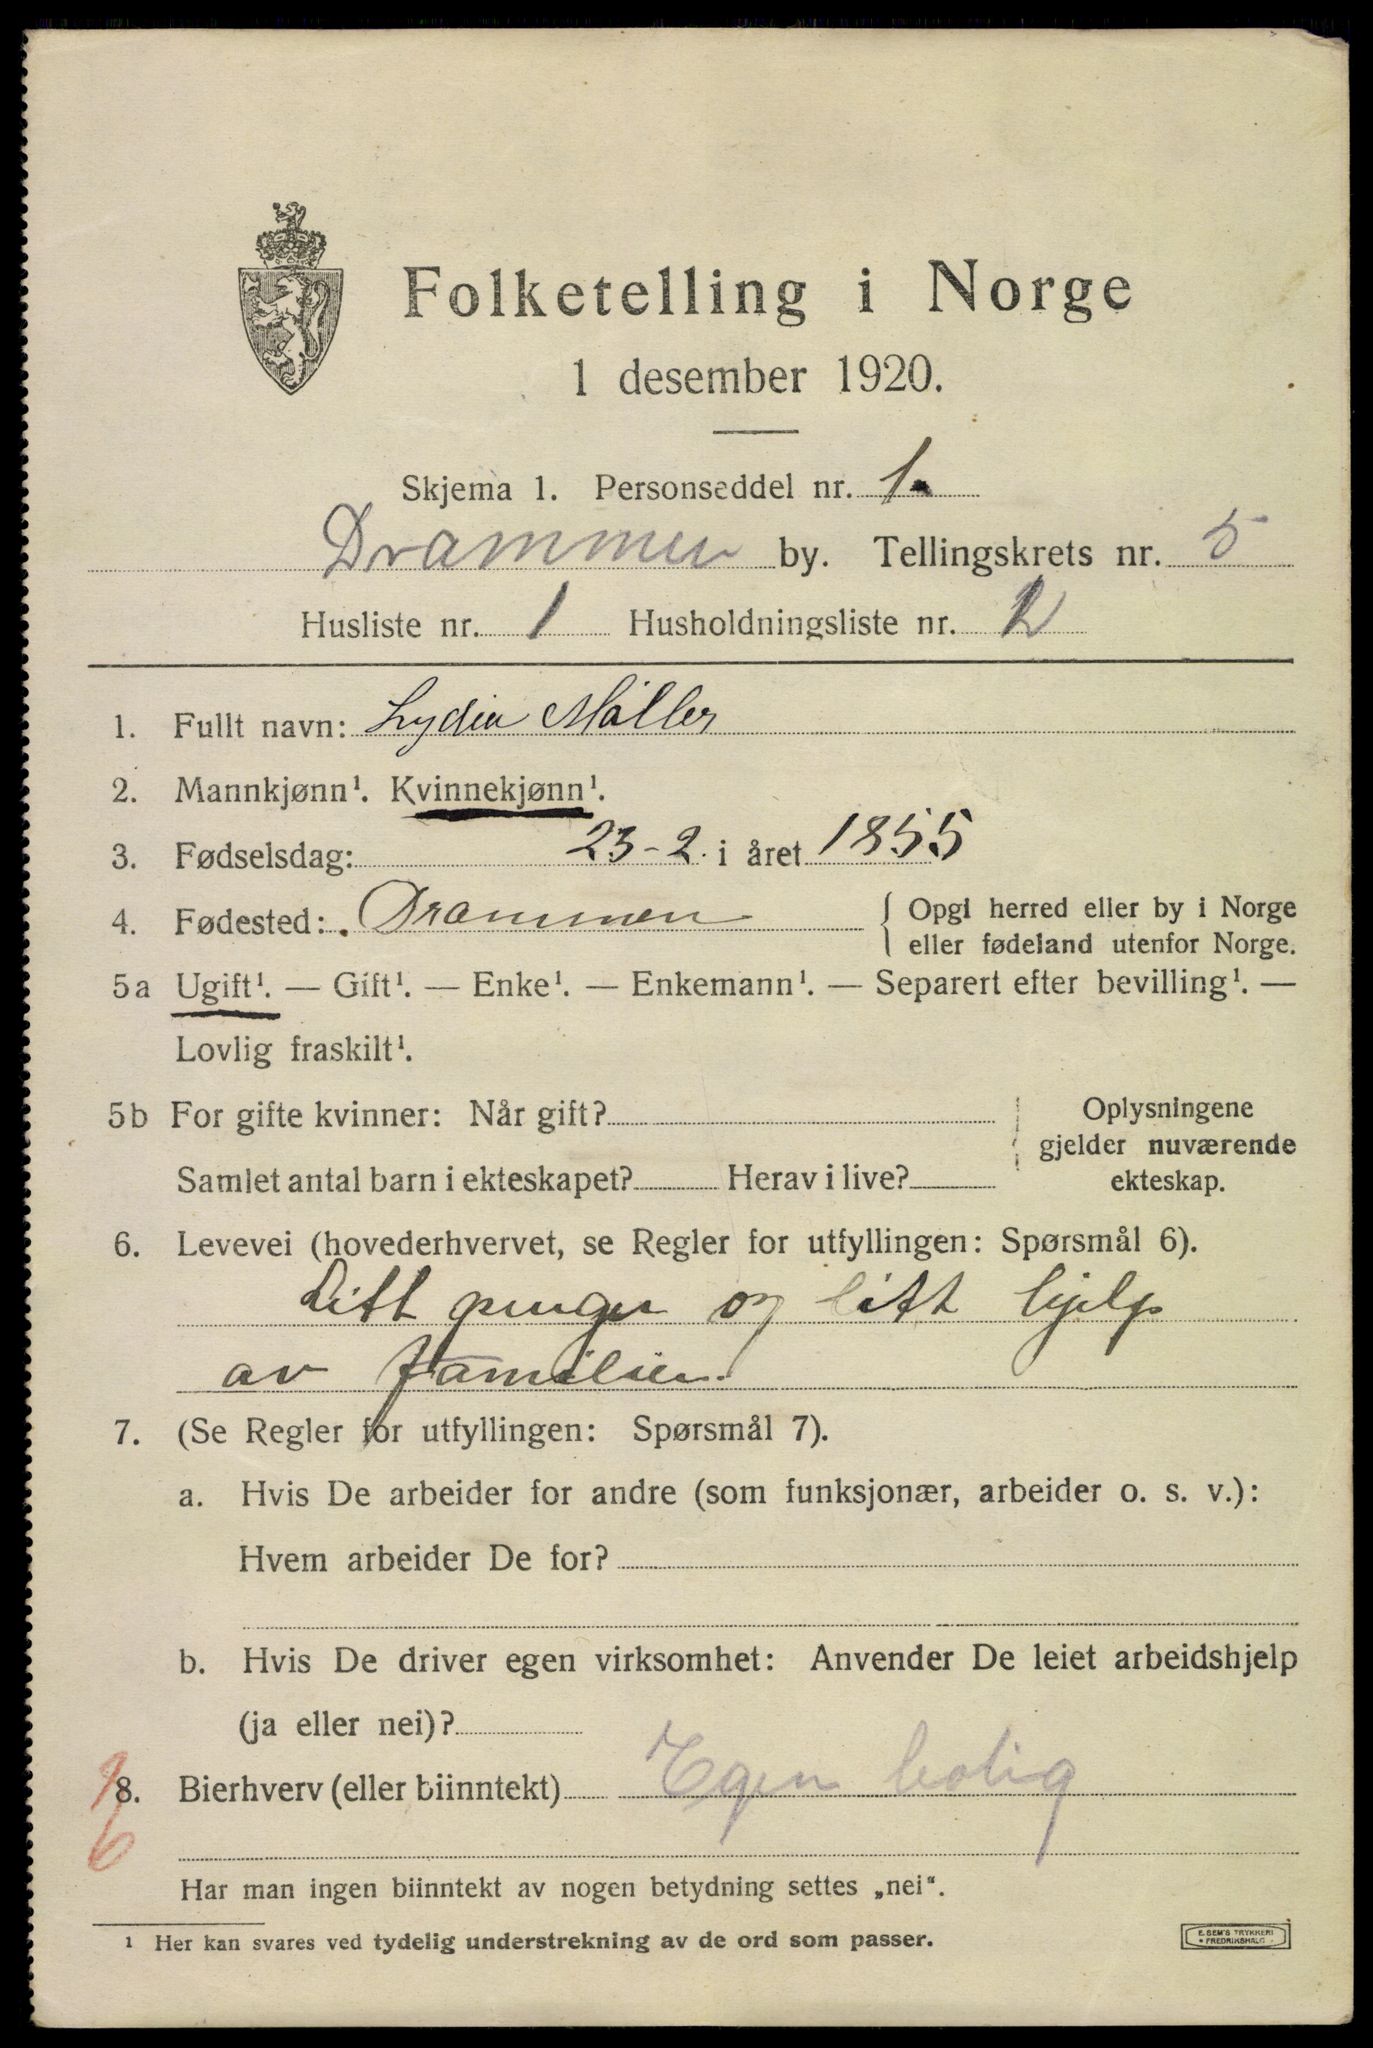 Folketelling i Norge
1 desember 1920.
Skjema 1. Personseddel nr. 1
Drammen by. Tellingskrets nr. 5
Husliste nr. 1 Husholdningsliste nr. 2
1. Fullt navn: Lydia Møller
2. Mannkjønn¹. Kvinnekjønn¹.
3. Fødselsdag: 23-2. i året 1855
4. Fødested: Drammen { Opgi herred eller by i Norge
eller fødeland utenfor Norge.
5a Ugift¹. — Gift¹. — Enke¹. — Enkemann¹. — Separert efter bevilling¹. —
Lovlig fraskilt¹.
5b For gifte kvinner: Når gift? Oplysningene
gjelder nuværende
Samlet antal barn i ekteskapet? Herav i live? ekteskap.
6. Levevei (hovederhvervet, se Regler for utfyllingen: Spørsmål 6).
Litt penger og litt hjelp
av familien.
7. (Se Regler for utfyllingen: Spørsmål 7).
a. Hvis De arbeider for andre (som funksjonær, arbeider o. s. v.):
Hvem arbeider De for?
b. Hvis De driver egen virksomhet: Anvender De leiet arbeidshjelp
(ja eller nei)?
8. Bierhverv (eller biinntekt) Egen bolig
6
Har man ingen biinntekt av nogen betydning settes „nei“.
¹ Her kan svares ved tydelig understrekning av de ord som passer.
E. SEM'S TRYKKERI
FREDRIKSHALD